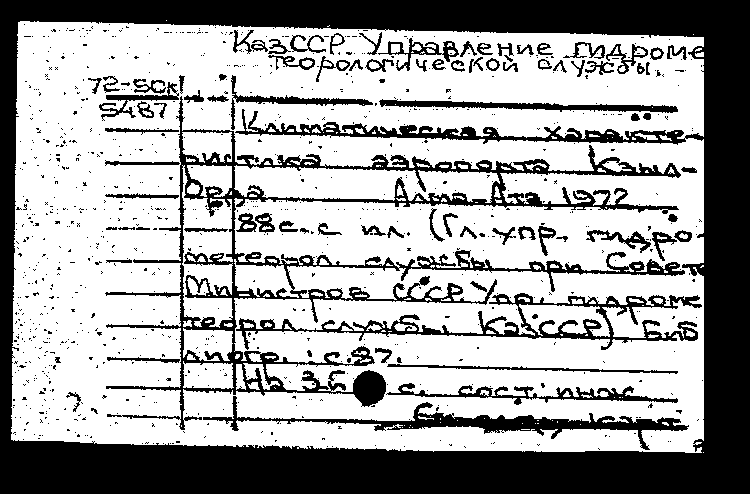 КазССР. Управление гидроме
теорологической службы.
72-50к
5487
Климатическая характе-
ристика аэропорта Кзыл-
Орда Алма-Ата, 1972
88с. с ил. (Гл. упр. гидро-
метеорол. службы при Совете
Министров СССР. Упр. гидроме
теорол службы КазССР) Биб
лиогр.: с.87.
На с. сост.: инж.